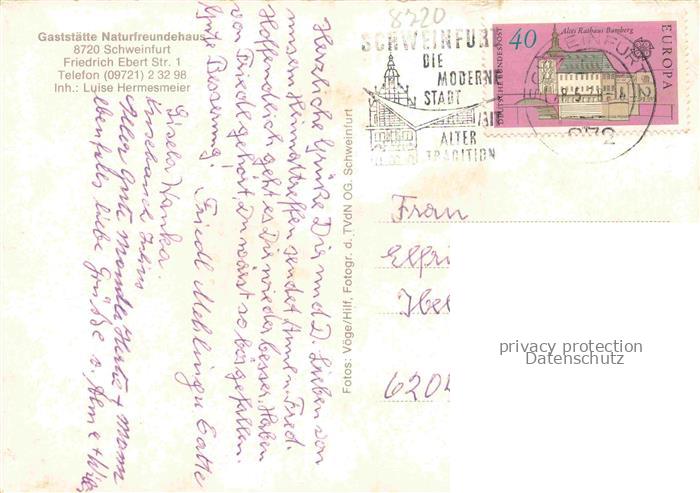 Gaststätte Naturfreundehaus
8720 Schweinfurt
Friedrich Ebert Str. 1
Telefon (09721) 2 32 98
Inh.: Luise Hermesmeier
Herzliche Grüße Dir und D. Lieben von
unserm Heimattreffen sendet Anni u. Fred.
Hoffendlich geht es Dir wieder besser. Haben
von Friedl gehört, Du wärst so bös gefallen.
Gute Besserung! Friedl u. Gatte
Gisela
Alles Gute + Mann
ebenfalls liebe Grüße v.
Fotos: Vöge/Hilf, Fotogr. d. TVdN OG. Schweinfurt
8720
SCHWEINFURT
DIE
MODERNE
STADT
MIT
ALTER
TRADITION
SCHWEINFURT
872
40
Altes Rathaus Bamberg
DEUTSCHE BUNDESPOST
EUROPA
Frau
Elfri
620
privacy protection
Datenschutz